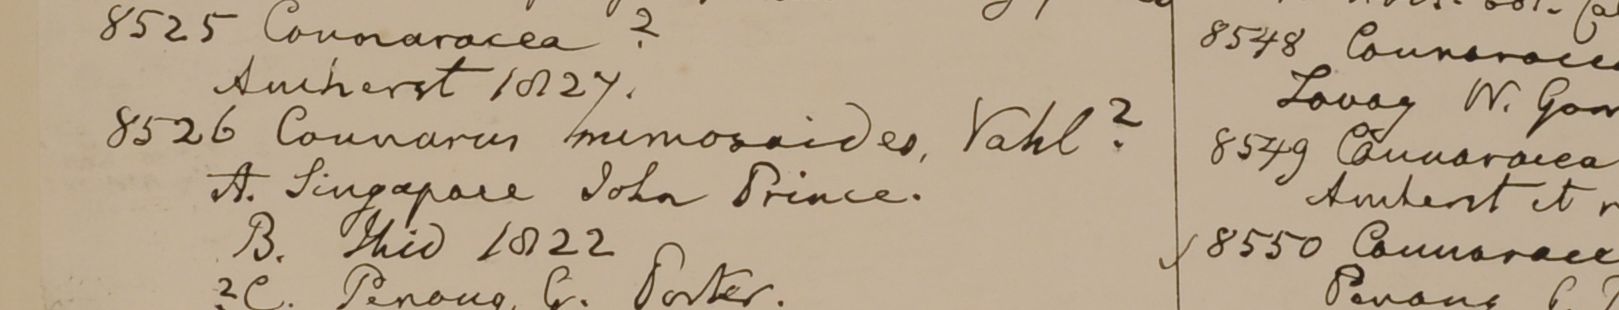 8525 Connaracea ?
Amherst 1827.
8526 Connarus mimosoides, Vahl ?
A. Singapore John Prince.
B. Ibid 1822
?C. Penang, G. Porter.
8548 Connaracea
Tavoy W. Gom
8549 Connaracea
Amherst et
8550 Connarace
Penang